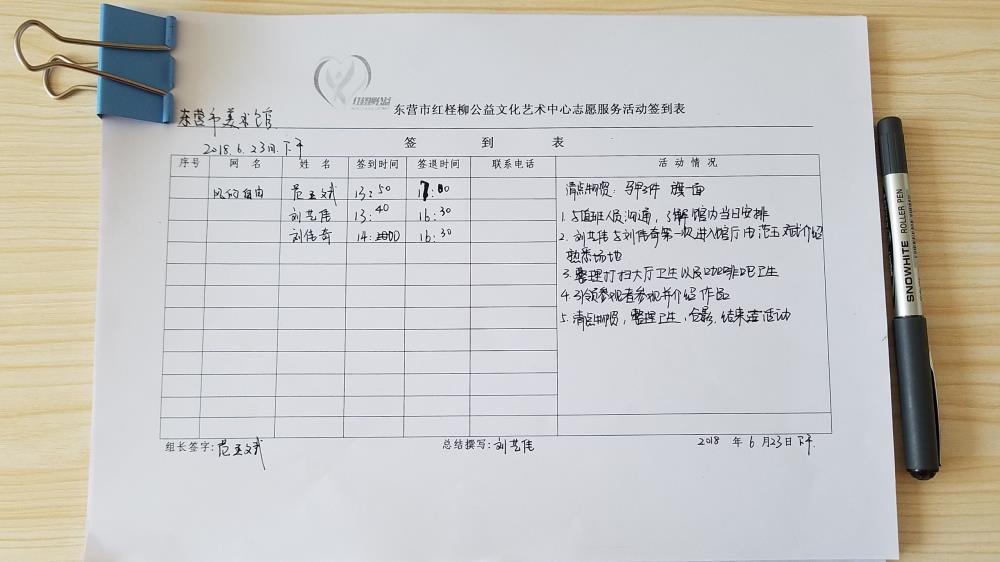 红柽柳公益
东营市红柽柳公益文化艺术中心志愿服务活动签到表
东营市美术馆
签 到 表
2018.6.23日.下午
序号 网 名 姓 名 签到时间 签退时间 联系电话 活 动 情 况
风的自由 范玉斌 13:50 17:00
刘艺伟 13:40 16:30
刘伟奇 14:00 16:30
清点物资: 马甲3件 旗一面
1. 与值班人员沟通,了解馆内当日安排
2. 刘艺伟与刘伟奇第一次进入馆厅由范玉斌介绍
熟悉场地
3. 整理打扫大厅卫生以及咖啡吧卫生
4. 引领参观者参观并介绍作品
5. 清点物资,整理卫生,合影.结束活动
组长签字: 范玉斌 总结撰写: 刘艺伟 2018 年 6 月 23 日 下午.
SNOWHITE ROLLER PEN